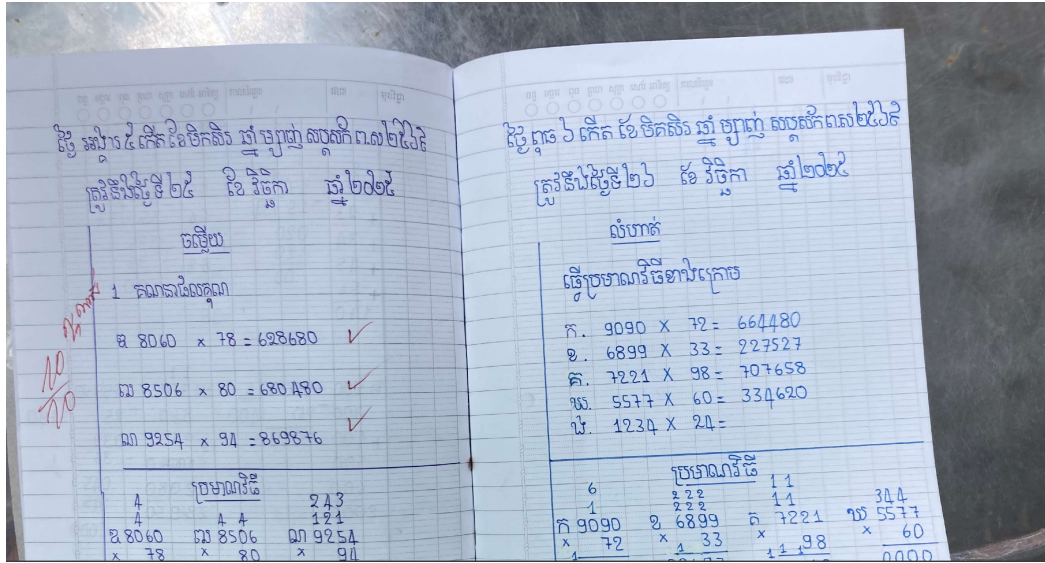 ថ្ងៃ អង្គារ ៥ កើត ខែមិគសិរ ឆ្នាំ ម្សាញ់ សប្តស័ក ព.ស ២៥៦៩
ត្រូវនឹងថ្ងៃទី ២៥ ខែ វិច្ឆិកា ឆ្នាំ ២០២៥
ចម្លើយ
1 គណនាផលគុណ
ឌ 8060 × 78 = 628680
ឍ 8506 × 80 = 680480
ណ 9254 × 94 = 869876
10
10
ប្រមាណវិធី
4 243
4 4 4 121
ឌ 8060 ឍ 8506 ណ 9254
× 78 × 80 × 94
ថ្ងៃ ពុធ ៦ កើត ខែ មិគសិរ ឆ្នាំ ម្សាញ់ សប្តស័ក ព.ស ២៥៦៩
ត្រូវនឹងថ្ងៃទី ២៦ ខែ វិច្ឆិកា ឆ្នាំ ២០២៥
លំហាត់
ធ្វើប្រមាណវិធីខាងក្រោម
ក. 9090 × 72 = 664480
ខ. 6899 × 33 = 227527
គ. 7221 × 98 = 707658
ឃ. 5577 × 60 = 334620
ង. 1234 × 24 =
ប្រមាណវិធី
6 222 11 344
1 222 11
ក 9090 ខ 6899 គ 7221 ឃ 5577
× 72 × 33 × 98 × 60
0000